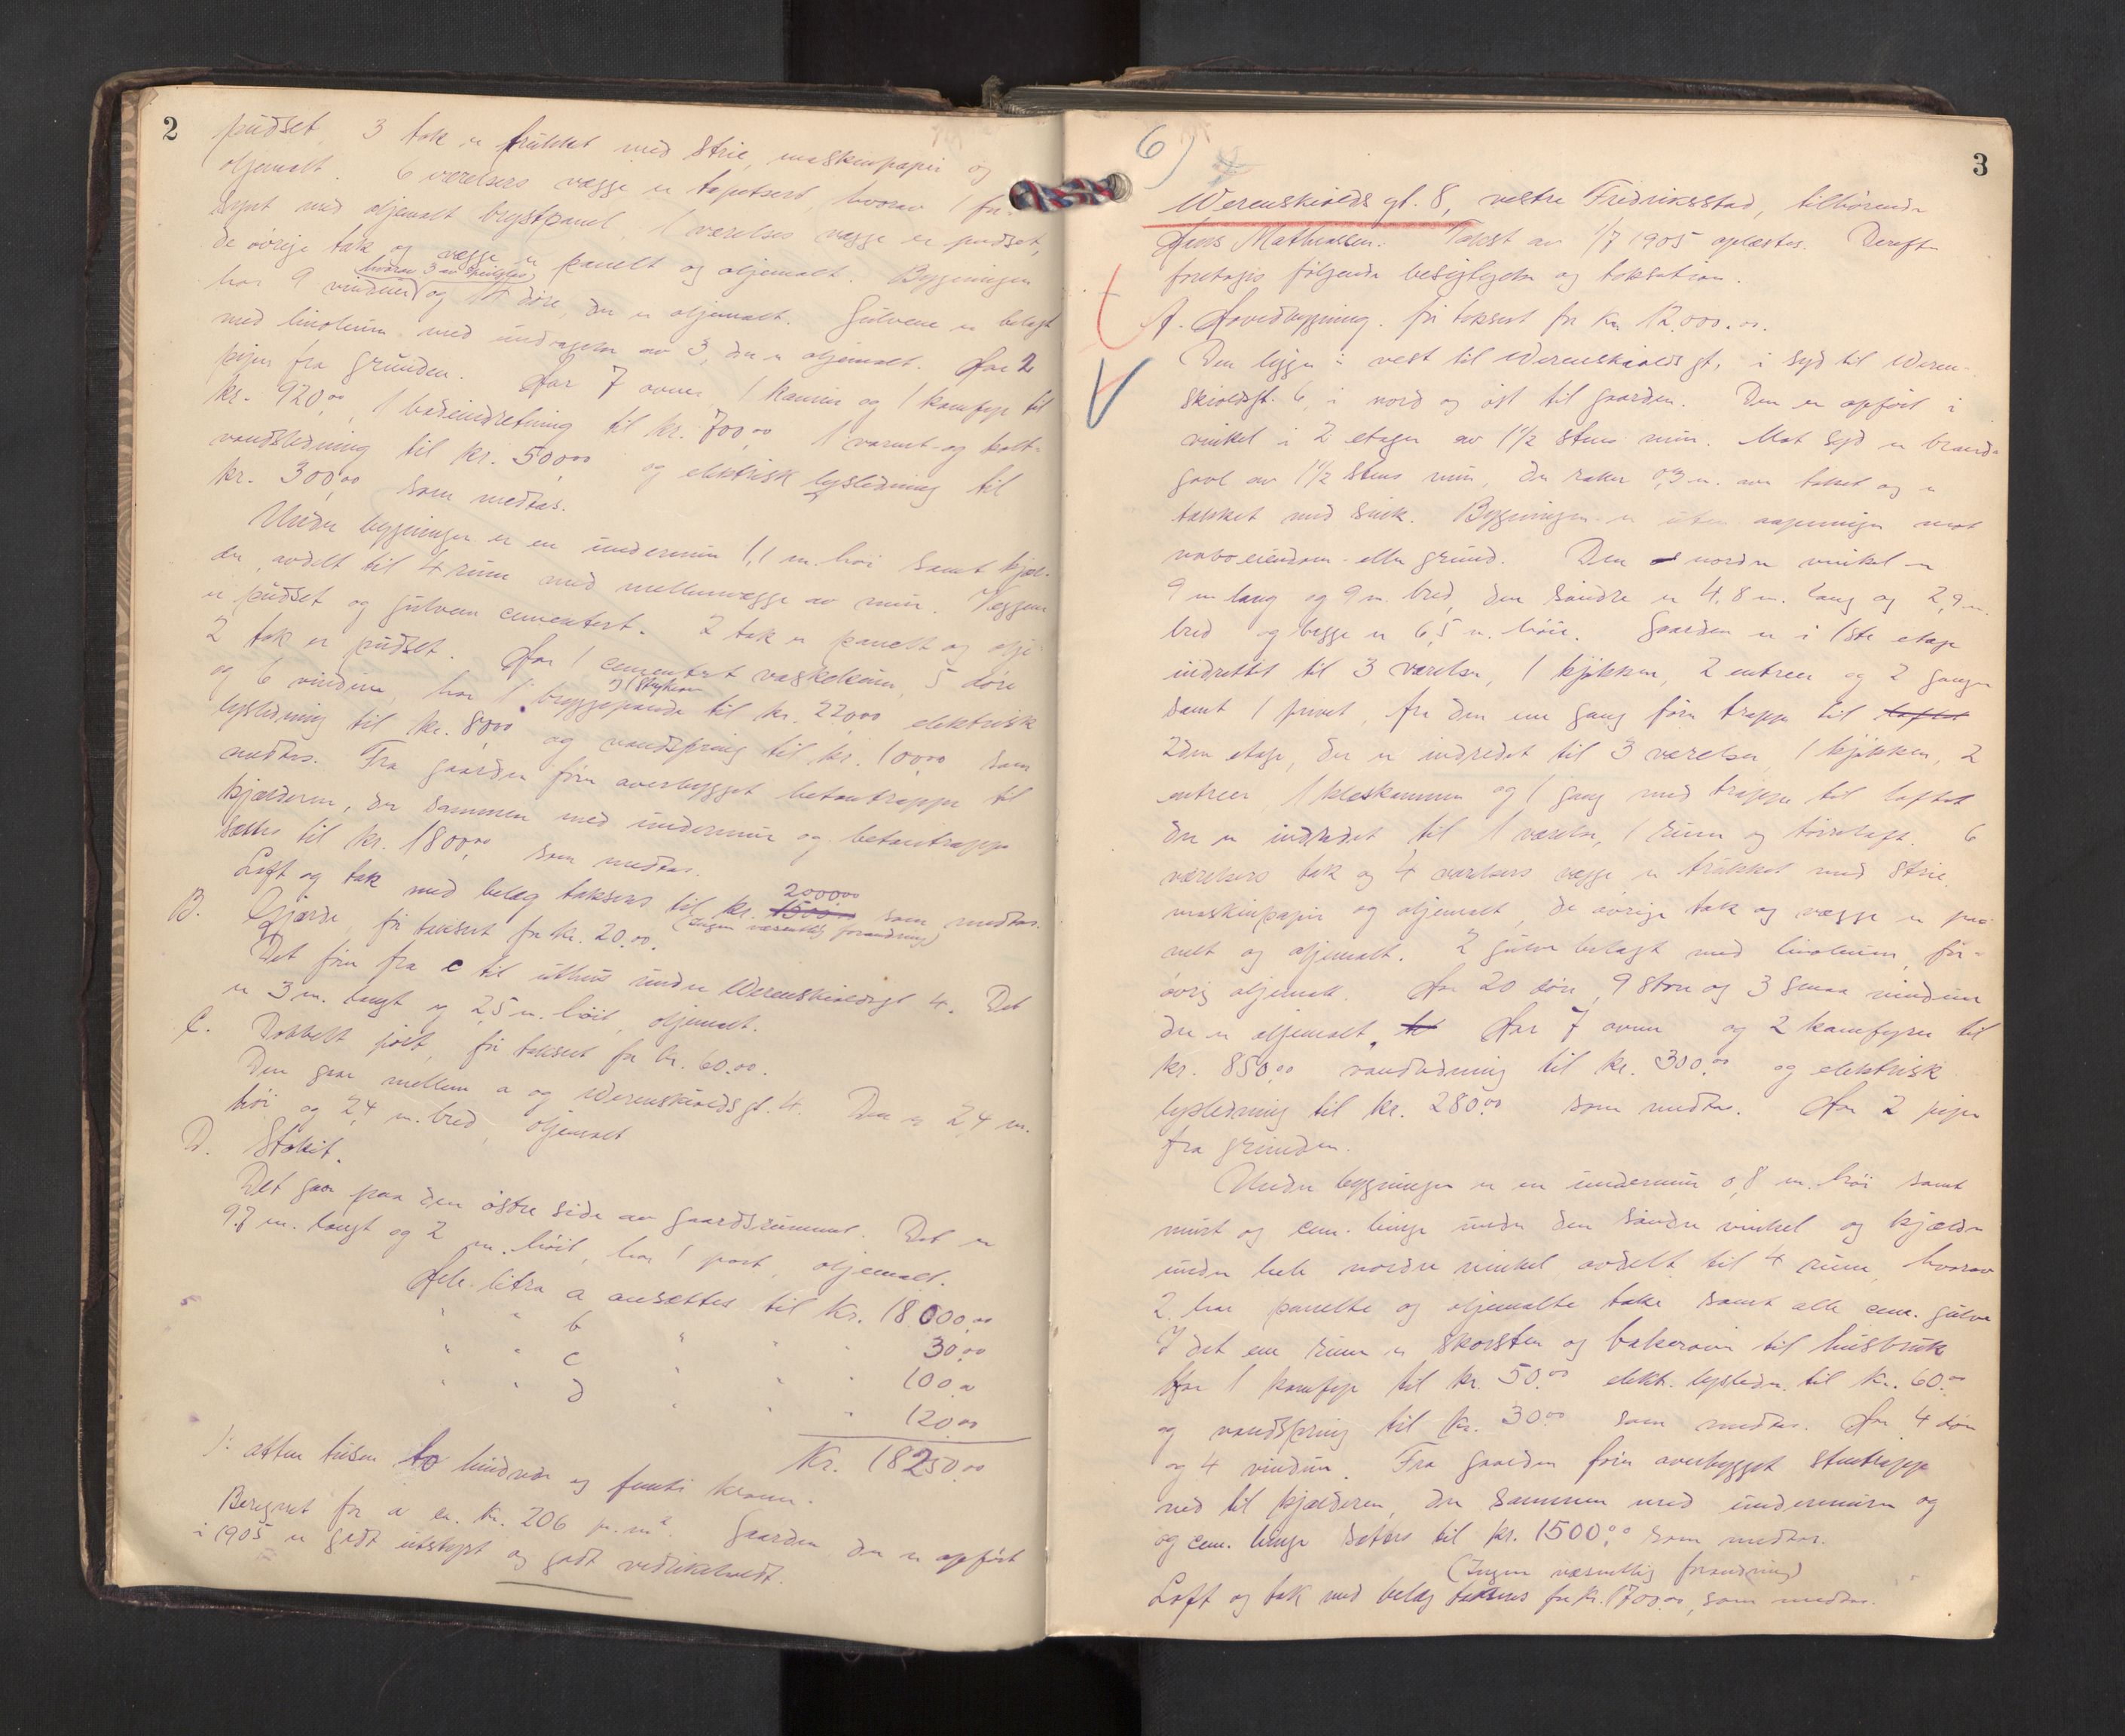 2
pudset, 3 tak er trukket med strie, maskinpapir og
oljemalt. 6 værelsers vægge er tapetsert, hvorav 1 for-
synt med oljemalt brystpanel, 1 værelses vægge er pudset,
de øvrige tak og vægge er panelt og oljemalt. Bygningen
hvorav 3 av
har 9 vinduer og 14 døre, der er oljemalt. Gulvene er belagt
med linoleum med undtagelse av 3, der er oljemalt. Har 2
piper fra grunden. Har 7 ovner, 1 kamin og 1 komfyr til
kr. 920,00, 1 badeindretning til kr. 700,00 1 varmt- og kolt-
vandsledning til kr. 500,00 og elektrisk lysledning til
kr. 300,00 som medtas.
Under bygningen er en undermur 1,1 m. høi samt kjæl-
der, avdelt til 4 rum med mellemvægge av mur. Væggene
er pudset og gulvene cementert. 2 tak er panelt og olje-
2 tak er pudset. Har 1 cementert vaskekum, 5 døre
og 6 vinduer, har 1 bryggepande til kr. 220,00 elektrisk
lysledning til kr. 80,00 og vandspring til kr. 100,00 som
medtas. Fra gaarden fører overbygget betontrappe til
kjælderen, der sammen med undermur og betontrappe
sættes til kr. 1800,00 som medtas.
2000,00
Loft og tak med belæg takseres til kr. 1500,00 som medtas.
(Ingen væsentlig forandring)
B. Gjærde, før taksert for kr. 20.00.
Det fører fra c til uthus under Werenskioldsgt 4. Det
er 3 m. langt og 2,5 m. høit, oljemalt.
C. Dobbelt port, før taksert for kr. 60.00.
Den gaar mellem a og Werenskioldsgt. 4. Den er 2,4 m.
høi og 2,4 m. bred, oljemalt
D. Stakit.
Det gaar paa den østre side av gaardsrummet. Det er
9.7 m. langt og 2 m. høit, har 1 port, oljemalt.
Ifh. litra a ansættes til Kr. 18000,00
" " b " " " 30,00
" " c " " " 100,00
" " d " " " 120,00
Kr. 18250,00
): atten tusen to hundrede og femti kroner.
Beregnet for a er kr. 206 pr. m². Gaarden, der er opført
i 1905 er godt utstyrt og godt vedlikeholdt.
6)
3
Werenskiolds gt. 8, vestre Fredriksstad, tilhørende
Hans Mathiassen. Takst av 1/7 1905 oplæstes. Derefter
foretoges følgende besigtigelse og taksation.
A. Hovedbygning. før taksert for kr. 12.000.00.
Den ligger i vest til Werenskioldsgt, i syd til Weren-
skioldsgt. 6, i nord og øst til gaarden. Den er opført i
vinkel i 2 etager av 1½ stens mur. Mot syd er brand-
gavl av 1½ stens mur, der raker 0,3 m. over taket og er
tækket med sink. Bygningen er uten aapninger mot
naboeiendom eller grund. Den nordre vinkel er
9 m lang og 9 m. bred, den søndre er 4,8 m. lang og 2,9 m.
bred og begge er 6,5 m. høie. Gaarden er i 1ste etage
indrettet til 3 værelser, 1 kjøkken, 2 entreer og 2 ganger
samt 1 privet, fra den ene gang fører trappe til loftet
2den etage, der er indredet til 3 værelser, 1 kjøkken, 2
entreer, 1 kleskammer og 1 gang med trappe til loftet
der er indredet til 1 værelse, 1 rum og tørreloft. 6
værelsers tak og 4 værelsers vægge er trukket med strie,
maskinpapir og oljemalt, de øvrige tak og vægge er pa-
nelt og oljemalt. 2 gulve belagt med linoleum, for-
øvrig oljemalt. Har 20 døre, 9 store og 3 smaa vinduer
der er oljemalt. Har 7 ovner og 2 komfyrer til
kr. 850,00 vandledning til kr. 300,00 og elektrisk
lysledning til kr. 280,00 som medtas. Har 2 piper
fra grunden.
Under bygningen er en undermur 0,8 m. høi samt
murt og cem. binge under den søndre vinkel og kjælder
under hele nordre vinkel avdelt til 4 rum, hvorav
2 har panelte og oljemalte take samt alle cem. gulve
I det ene rum er skorsten og bakerovn til husbruk
Har 1 komfyr til kr. 50,00 elekt. lysledn. til kr. 60,00
og vandspring til kr. 30,00 som medtas. Har 4 døre
og 4 vinduer. Fra gaarden fører overbygget stentrappe
ned til kjælderen, der sammen med undermuren og
og cem. binge sættes til kr. 1500,00 som medtas.
(Ingen væsentlig forandring)
Loft og tak med belæg takseres for kr. 1700,00, som medtas.